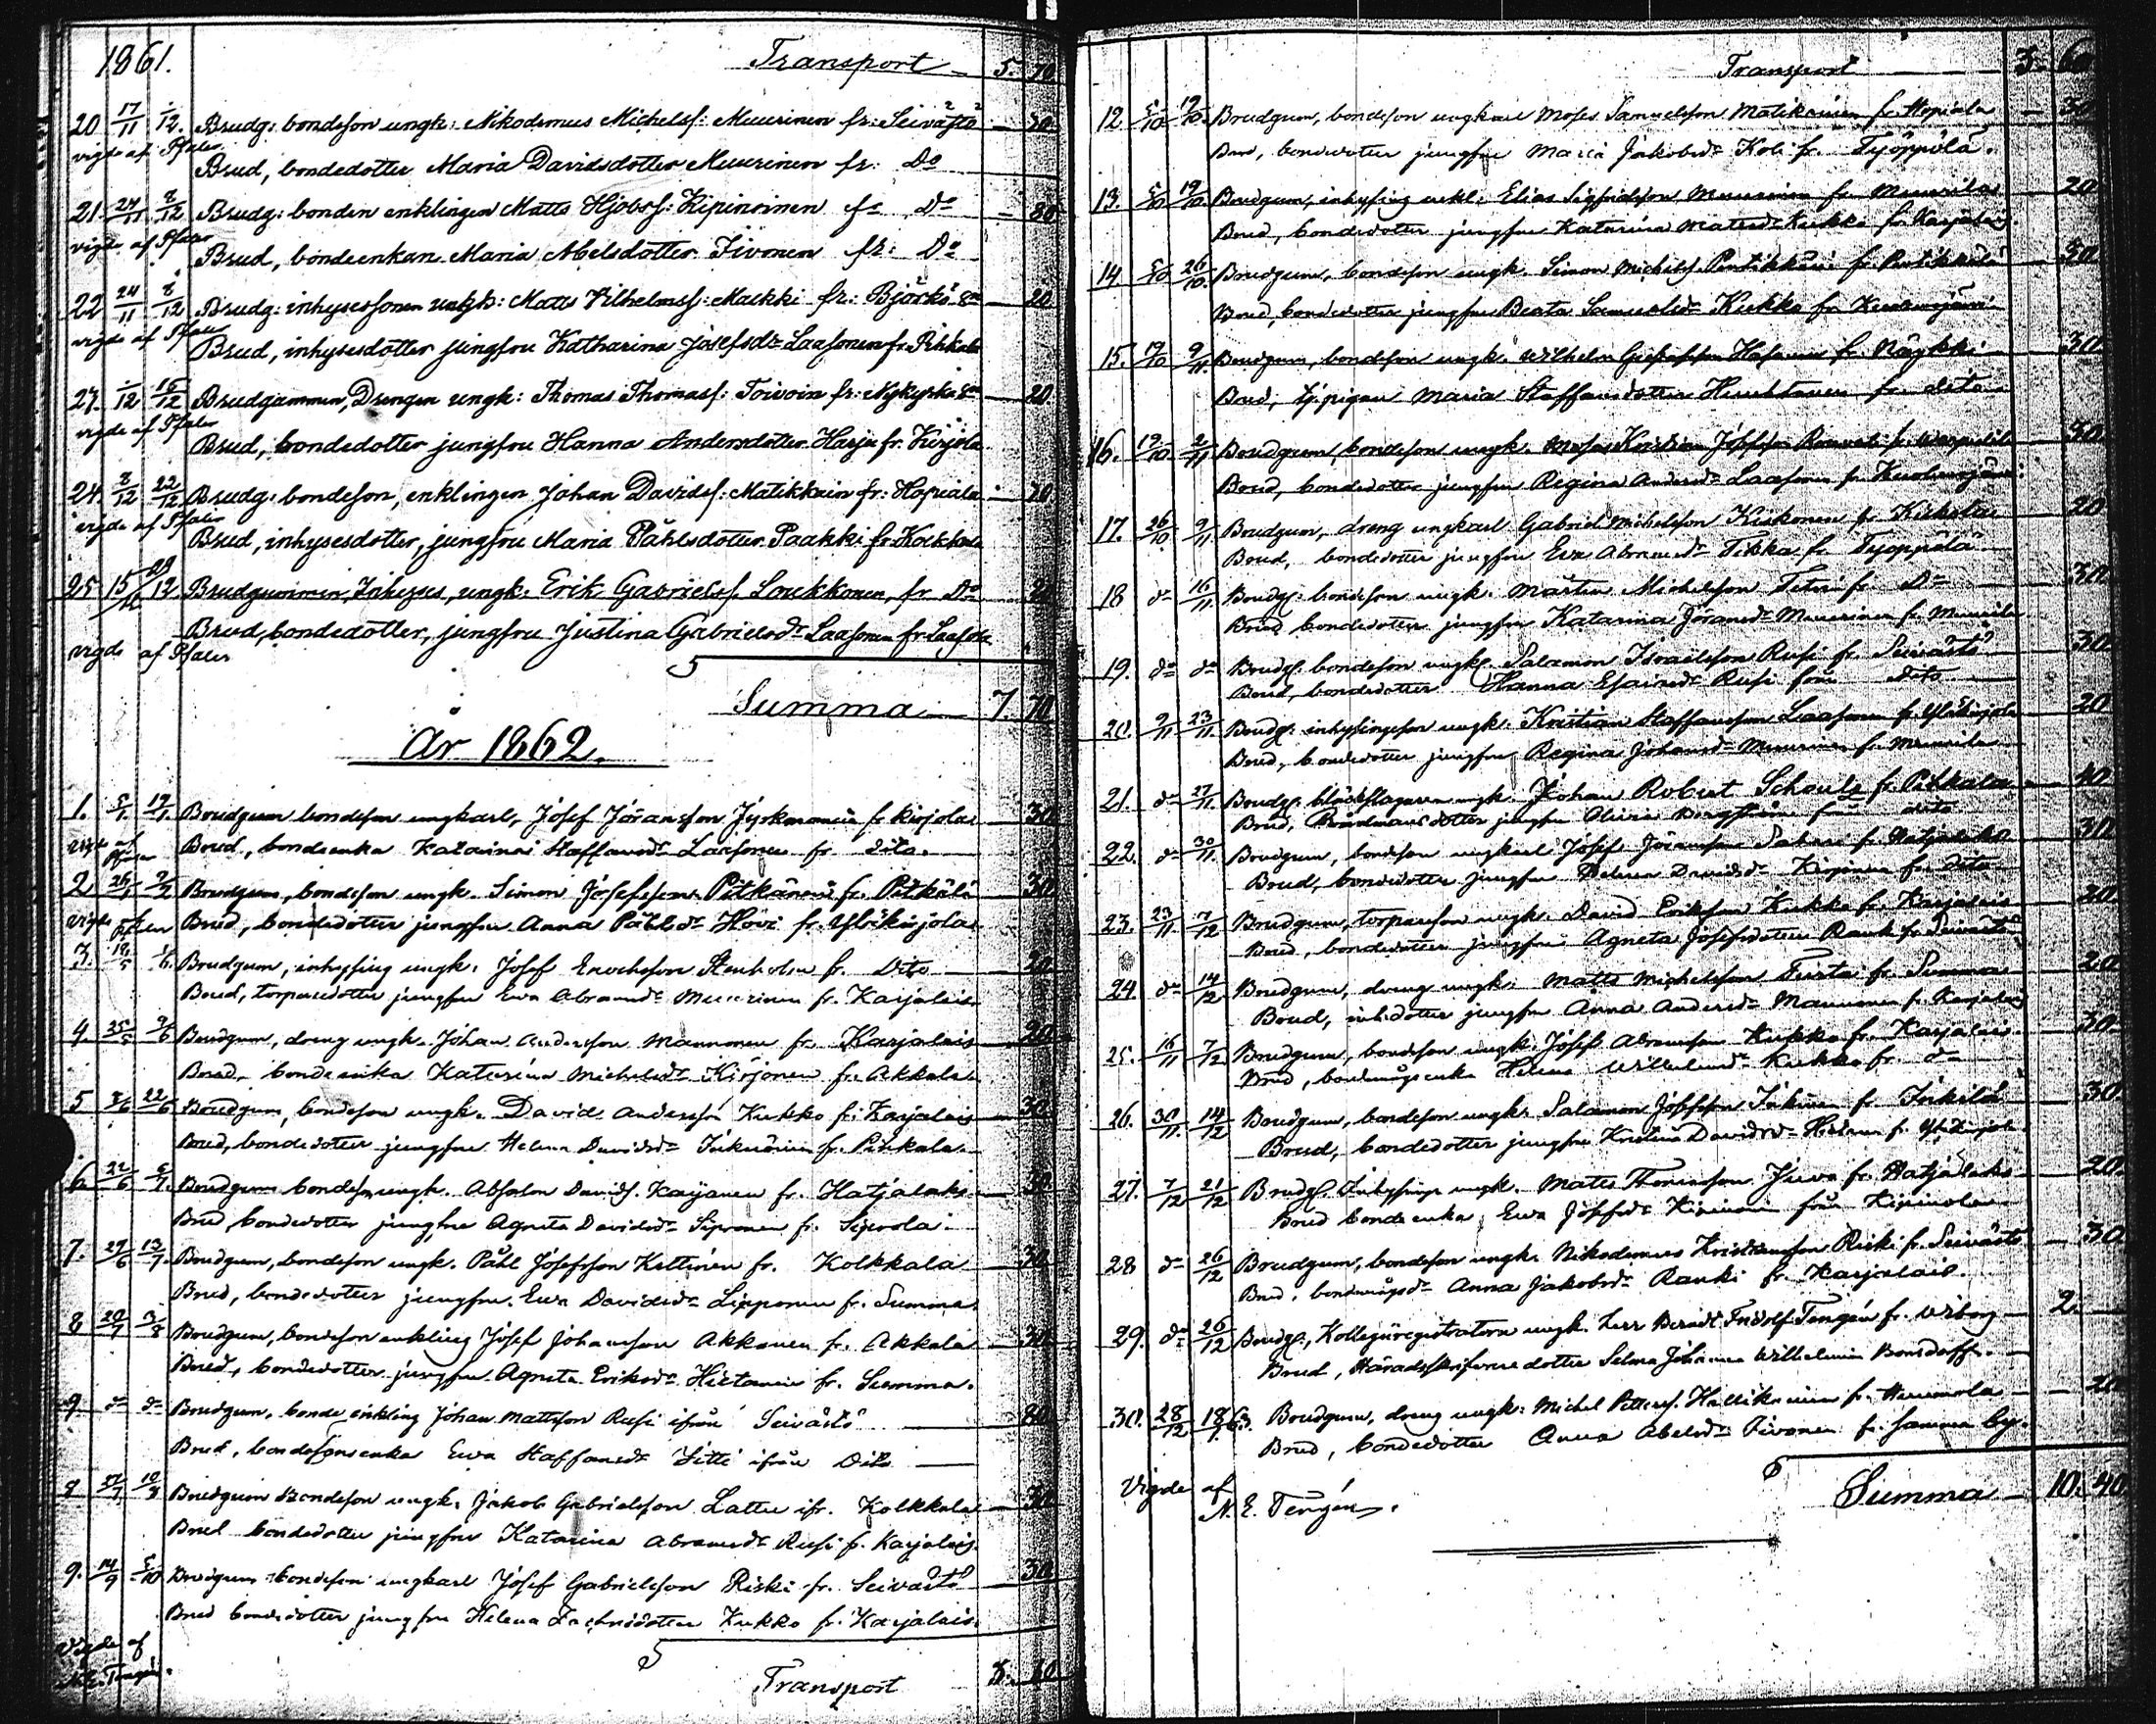 1861.
Transport 5. 70
20 17/11 1/12. Brudg: bondeson ungk: Nikodemus Michelsf: Muurinen fr: Seivästö 20
vigde af Pfaler
Brud, bondedotter Maria Davidsdotter Muurinen fr: Do
21 24/11 8/12 Brudg: bonden enklingen Matts Hjobsf: Kipinoinen fr Do 80
vigde af Pfaler
Brud, bondeenkan Maria Abelsdotter Tivonen fr: Do
22 24/11 8/12 Brudg: inhysessonen ungk: Matts Vilhelmsf: Mackki fr: Björkö sn 20
vigde af Pfaler
Brud, inhysesdotter jungfru Katharina Josefsdr Laasonen fr. Pihkala
23. 1/12 15/12 Brudgummen, Drengen ungk: Thomas Thomasf: Toivoin fr: Nykyrko sn 20
vigde af Pfaler
Brud, bondedotter jungfru Hanna Andersdotter Harju fr. Kirjola
24. 8/12 22/12 Brudg: bondeson, enklingen Johan Davidsf: Matikkain fr: Hopiala 20
vigde af Pfaler
Brud, inhysesdotter, jungfru Maria Påhlsdotter Paakki fr. Kolkkala
25 15/12 29/12 Brudgummen, Inhyses, ungk. Erik Gabrielsf. Loukkonen, fr Do 20
Brud, bondedotter, jungfru Justina Gabrielsdr Laasonen fr Laasola
vigde af Pfaler
Summa 7. 70
År 1862.
1. 5/1. 19/1. Brudgum bondeson ungkarl, Josef Göransson Jyskenainen fr kirjola 30
vigde af Pfaler
Brud, bondeenka Katarina Staffansdr Laasonen fr dito.
2 26/1 2/2 Brudgum, bondeson ungk. Simon Josefsson Pitkänen fr. Pitkälä 30
vigde Pfaler
Brud, bondedotter jungfru Anna Påhlsdr Hovi fr. Yläkirjola
3. 19/5 1/6. Brudgum, inhysing ungk. Josef Enochsson Stenholm fr. Dito 20
Brud, torparedotter jungfru Eva Abramsdr Muurinen fr. Karjalais
4. 25/5 9/6 Brudgum, dreng ungk. Johan Andersson Mannonen fr. Karjalais 20
Brud, bondeenka Katarina Michelsdr Kirjonen fr. Akkala
5 8/6 22/6 Brudgum, bondeson ungk. David Andersson Kukko fr. Karjalais 30
Brud, bondedotter jungfru Helena Davidsdr Inkinen fr. Pihkala.
6. 22/6 6/7. Brudgum bondeson ungk. Absalon Davidf. Karjanen fr. Hatjalaks 30
Brud bondedotter jungfru Agneta Davidsdr Sipronen fr. Siprola.
7. 29/6 13/7. Brudgum, bondeson ungk. Påhl Josefsson Kettinen fr. Kolkkala 30
Brud, bondedotter jungfru Eva Davidsdr Lipponen fr. Summa.
8 20/7 3/8 Brudgum, bondeson enkling Josef Johansson Akkanen fr. Akkala 30
Brud, bondedotter jungfru Agneta Eriksdr Hietanen fr. Summa.
9 do do Brudgum, bonde enkling Johan Mattsson Rusi ifrån Seivästö 80
Brud, bondesonsenka Eva Staffansdr Sitti ifrån Dito
8 27/7 10/8 Brudgum Bondeson ungk. Jakob Gabrielsson Lattu ifr. Kolkkala 30
Brud bondedotter jungfru Katarina Abramsdr Rusi fr. Karjalais.
9. 14/9 5/10 Brudgum bondeson ungkarl Josef Gabrielsson Riski fr. Seivästö 30
Brud bondedotter jungfru Helena Zachrisdotter Kukko fr. Karjalais.
Vigde af
N. E. Tengén.
Transport 3. 60
Transport 3 60
12 5/10 19/10. Brudgum, bondeson ungkarl Moses Samuelsson Matikainen fr. Hopiala 30
Brud, bondedotter jungfru Maria Jakobsdr Koli fr. Tyoppölä.
13. 5/10 19/10. Brudgum, inhysing enkl. Elias Sigfridsson Muurinen fr. Muurila 20
Brud, bondedotter jungfru Katarina Matsdr Kukko fr. Karjalais
14 5/10 26/10. Brudgum, bondeson ungk. Simon Michelsf. Pentikkäin fr. Pentikkälä 30
Brud, bondedotter jungfru Beata Samuelsdr Kukko fr. Kuolemajärvi
15. 19/10 9/11 Brudgum, bondeson ungk. Wilhelm fr. Näykki 30
Brud, tj. pigan Maria Staffansdotter fr dito
16. 19/10 2/11 Brudgum, bondeson ungk. Kristian Josefsson fr. 30
Brud, bondedotter jungfru Regina Andersdr Laasonen fr. Kuolemajärvi
17. 26/10 9/11 Brudgum, dreng ungkarl Gabriel Michelsson Kiskonen fr 20
Brud, bondedotter jungfru Eva Abramsdr Tikka fr Tyoppölä
18 do 16/11 Brudg. bondeson ungk. Mårten Michelsson Tetri fr. Do 30
Brud bondedotter jungfru Katarina Göransdr Muurinen fr. Muurila
19. do do Brudg. bondeson ungk. Salamon Israelsson Rusi fr. Seivästö 30
Brud, bondedotter Hanna Esaiasdr Rusi från dito
20. 9/11 23/11. Brudg. inhysingeson ungk. Kristian Staffansson Laasonen fr. Yläkirjola 20
Brud, bondedotter jungfru Regina Johansdr Muurinen fr. Muurila
21. do 27/11. Brudg. bläckslagaren ungk. Johan Robert Schoultz fr. Pihkala 40
Brud, dotter jungfru Olivia Bergström från dito
22. do 30/11 Brudgum, bondeson ungkarl Josef Göransson fr. Hatjalaks 30
Brud, bondedotter jungfru Helena Davidsdr Kirjonen fr. dito
23. 23/11 7/12 Brudgum, torpareson ungk. David Eriksson Kukko fr. Karjalais 20
Brud, bondedotter jungfru Agneta Josefsdotter fr. Seivästö
24. do 14/12 Brudgum, dreng ungk. Matts Michelsson Turta fr. Summa 20
Brud, inh.dotter jungfru Anna Andersdr Mannonen fr. Karjalais
25. 16/11 7/12 Brudgum, bondeson ungk. Josef Abramsson Kukko fr. Karjalais 30
Brud, bondemågsenka Helena Wilhelmsdr Kukko fr. do
26. 30/11. 14/12 Brudgum, bondeson ungk. Salamon Josefsson Inkinen fr Inkilä 30
Brud, bondedotter jungfru Kristina Davidsdr Hietanen fr. Yläkirjola
27. 7/12 21/12 Brudg. Inhysinge ungk. Matts Thomasson Juva fr. Hatjalaks 20.
Brud bondeenka Eva Josefsdr Kipinoin från Kipinola
28 do 26/12 Brudgum, bondeson ungk. Nikodemus Kristiansson Riski fr. Seivästö 30
Brud. bondemågsdr Anna Jakobsdr Ranki fr. Karjalais.
29. do 26/12 Brudg., Kollegiiregistratorn ungk. herr Berndt Fridolf Tengén fr. Wiborg 2.
Brud, Häradsskrifvaredotter Selma Johanna Wilhelmina Bonsdorff.
30. 28/12 18/1 63. Brudgum, dreng ungk: Michel Pettersf. Hallikainen fr. Humala 20
Brud, bondedotter Anna Abelsdr Tivonen fr. samma by.
Vigde af
N. E. Tengén.
Summa 10. 40